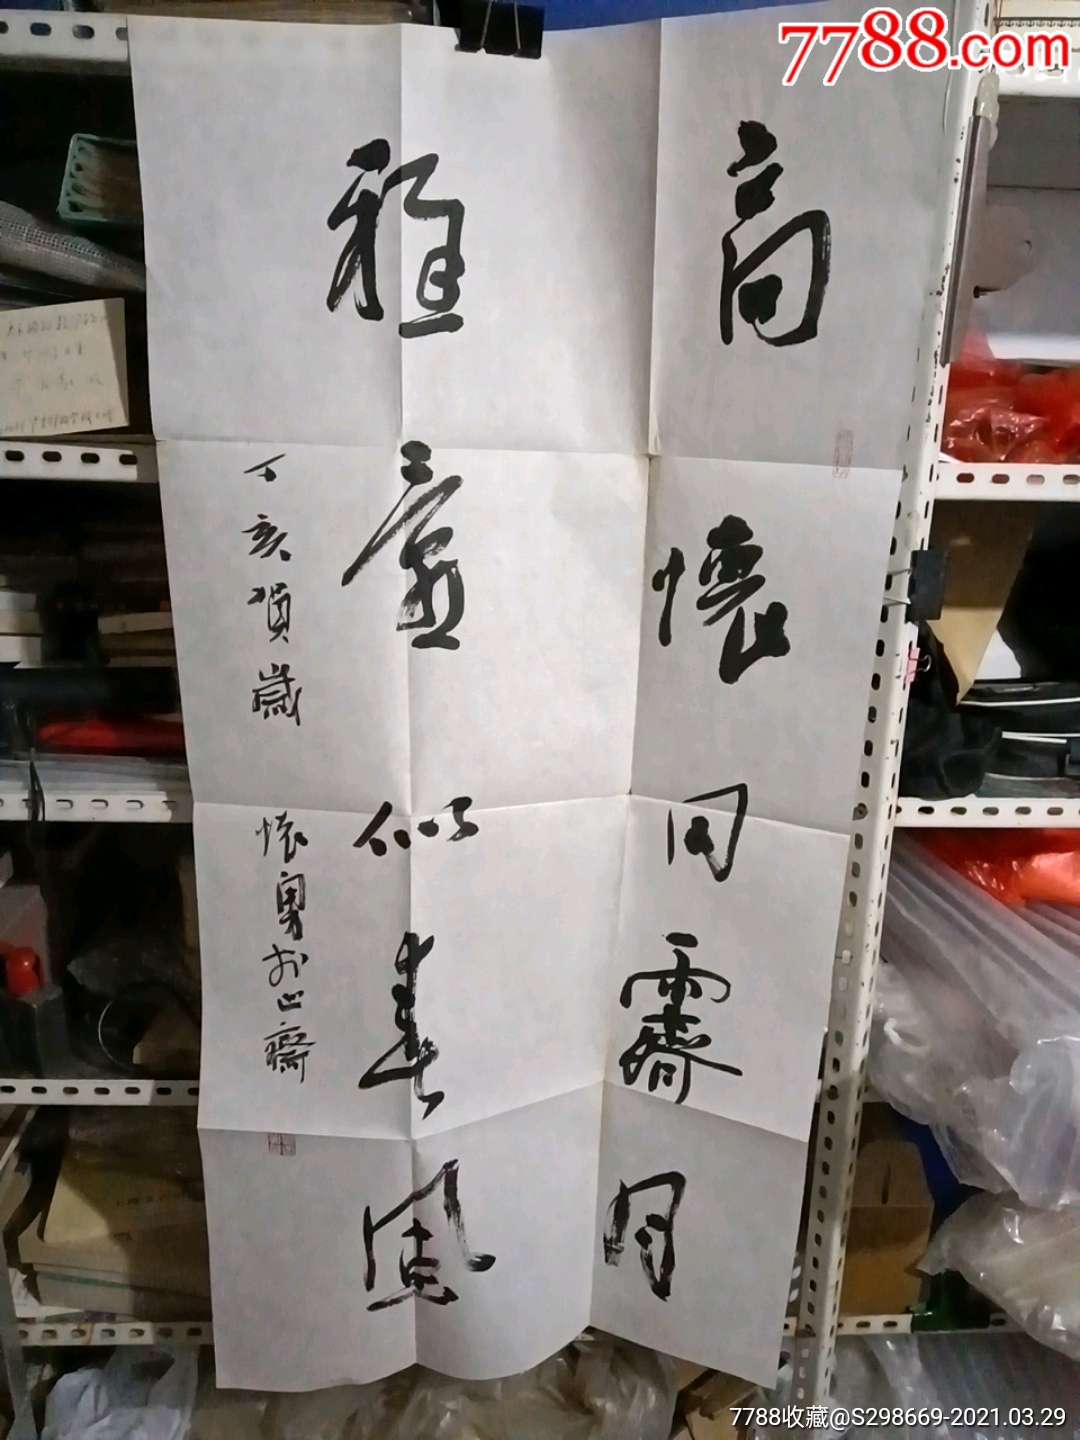 7788.com
高懷同霽月
雅意似春風
丁亥賀歲
懷勇於心齋
7788收藏@S298669-2021.03.29